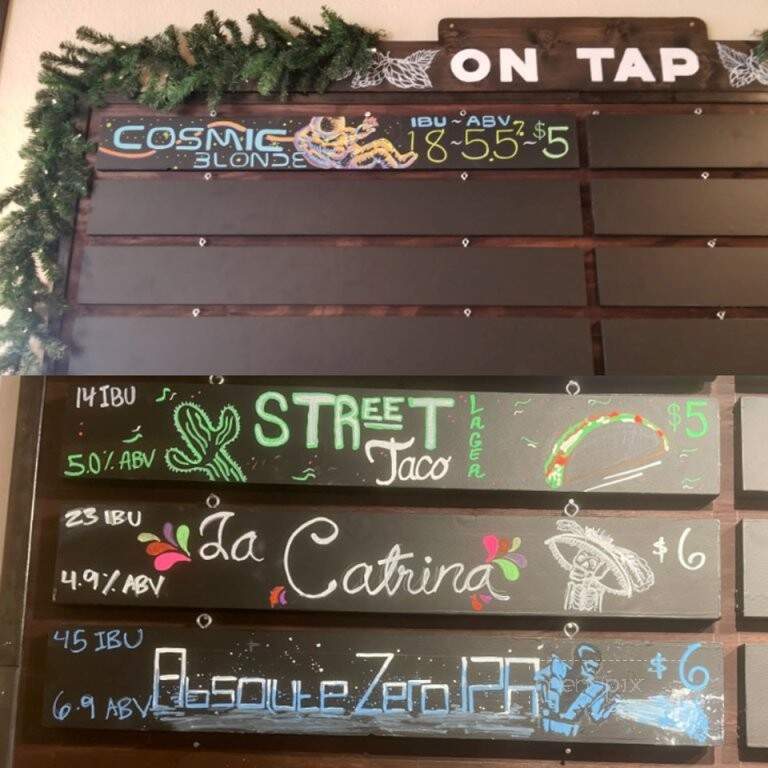 ON TAP
COSMIC
BLONDE
IBU ~ ABV
18 ~ 5.5% ~ $5
14 IBU
5.0% ABV
STREET
Taco
LAGER
$5
23 IBU
4.9% ABV
La Catrina
$6
45 IBU
6.9 ABV
Absolute Zero IPA
$6